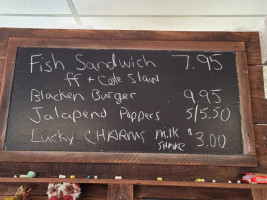 Fish Sandwich 7.95
ff + Cole Slaw
Blacken Burger 9.95
Jalapeno Poppers 5/5.50
Lucky CHARMS milk SHAKE $3.00